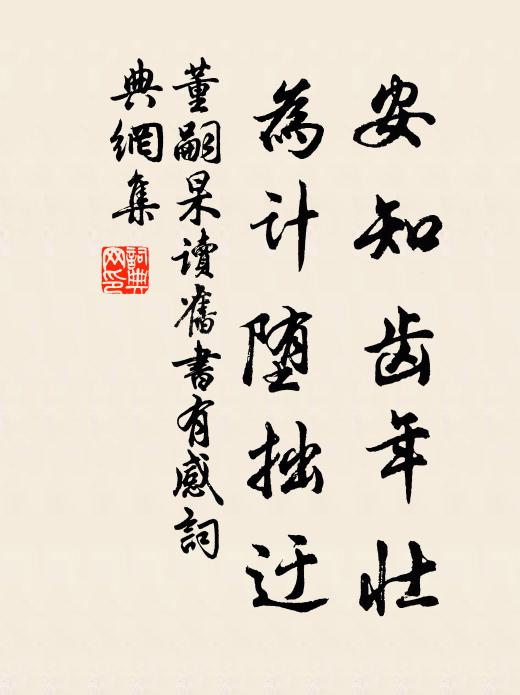 安知齿年壮
為计堕拙迂
董嗣杲讀舊書有感詞
典網集
詞典網印